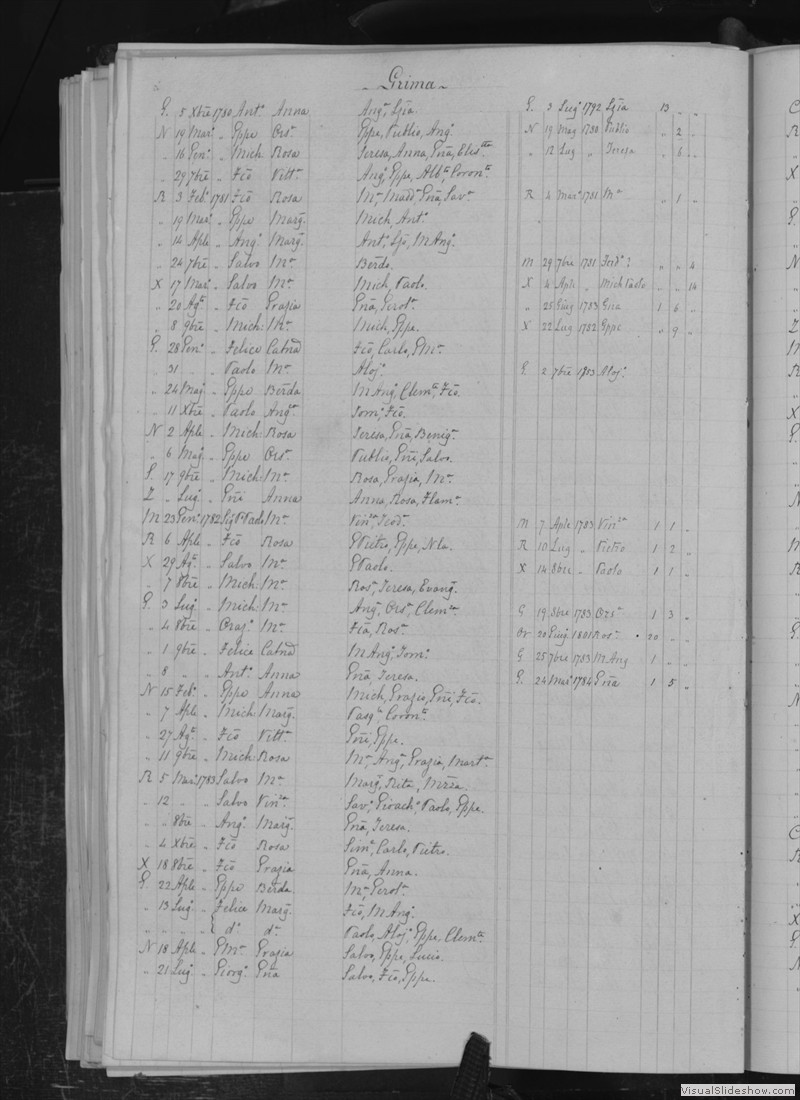 Grima
G. 5 Xbre 1780 Ant.o Anna Ang.a, Lzia. G. 3 Lug.o 1792 Lzia 13 " "
N 19 Mar.o " Gppe Ors.a Gppe, Publio, Ang.o N 19 Mag 1780 Publio " 2 "
" 16 Gen.o " Mich: Rosa Teresa, Anna, Gña, Elis.tta " 12 Lug " Teresa " 6 "
" 29 7bre " Fcõ Vitt.a Ang.o, Gppe, Alb.o, Coron.a
R 3 Feb.o 1781 Fcõ Rosa M.a Madd.a, Gña, Sav.a R 4 Mar.o 1781 M.a " 1 "
" 19 Mar.o " Gppe Marg. Mich, Ant.o
" 14 Aple " Ang.o Marg. Ant.o, Lzo, M Ang.o
" 24 7bre " Salvo M.a Berdo. M 29 7bre 1781 " " 4
X 17 Mar.o " Salvo M.a Mich, Paolo. X 4 Aple " Mich Paolo " " 14
" 20 Ag.o " Fcõ Grazia Gña, Gerol.a " 25 Giug 1783 Gna 1 6 "
" 8 9bre " Mich: M.a Mich, Gppe. X 22 Lug 1782 Gppe " 9 "
G. 28 Gen.o " Felice Catnã Fcõ, Carlo, GM.a
" 31 " " Paolo M.a Aloj.o G. 2 7bre 1783 Aloj.o
" 24 Mag.o " Gppe Berda M Ang.o, Clem.a, Fcõ.
" 11 Xbre " Paolo Ang.a Dom.o, Fcõ.
N 2 Aple " Mich: Rosa Teresa, Gña, Benig.a
" 6 Mag.o " Gppe Ors.a Publio, Gñi, Salvo.
G. 17 9bre " Mich: M.a Rosa, Grazia, M.a
Z " Lug.o " Gñi Anna Anna, Rosa, Flam.a
M 23 Gen.o 1782 M.a Vin.za, Teod.a M 7 Aple 1783 Vin.za 1 1 "
R 6 Aple " Fcõ Rosa GPietro, Gppe, R 10 Lug " Pietro 1 2 "
X 29 Ag.o " Salvo M.a GPaolo. X 14 8bre " Paolo 1 1 "
" 7 8bre " Mich: M.a Ros.a, Teresa, Evang.
G. 3 Lug.o " Mich: M.a Ang.o, Ors.a, Clem.za G 19 8bre 1783 Ors.a 1 3 "
" 4 8bre " Oraz.o M.a Fca, Ros.a Or 20 Giug. 1801 Ros.a 20 " "
" 1 9bre " Felice Catnã M Ang.o, Dom.o G 25 7bre 1783 M Ang 1 " "
" 8 " " Ant.o Anna Gña, Teresa. G. 24 Mar.o 1784 Gña 1 5 "
N 15 Feb.o " Gppe Anna Mich, Grazio, Gñi, Fcõ.
" 7 Aple " Mich: Marg. Pasq.le, Coron.a
" 27 Ag.o " Fcõ Vitt.a Gñi, Gppe.
" 11 9bre " Mich: Rosa M.a Ang.a, Grazia, Mart.a
R 5 Mar.o 1783 Salvo M.a Marg, Rita, Mzza.
" 12 " " Salvo Vin.za Sav.o, Gioach.o, Paolo, Gppe.
" " 8bre " Ang.o Marg. Gña, Teresa.
" 4 Xbre " Fcõ Rosa Sim.e, Carlo, Pietro.
X 18 8bre " Fcõ Grazia Gña, Anna.
G. 22 Aple " Gppe Berda M.a Gerol.a
" 13 Lug.o " Felice Marg. Fcõ, M Ang.o
" " " " { d.o d.a Paolo, Aloj.o, Gppe, Clem.te
N 18 Aple " GM.a Grazia Salvo, Gppe, Lucio.
" 21 Lug.o " Giorg.o Gña Salvo, Fcõ, Gppe.
VisualSlideshow.com